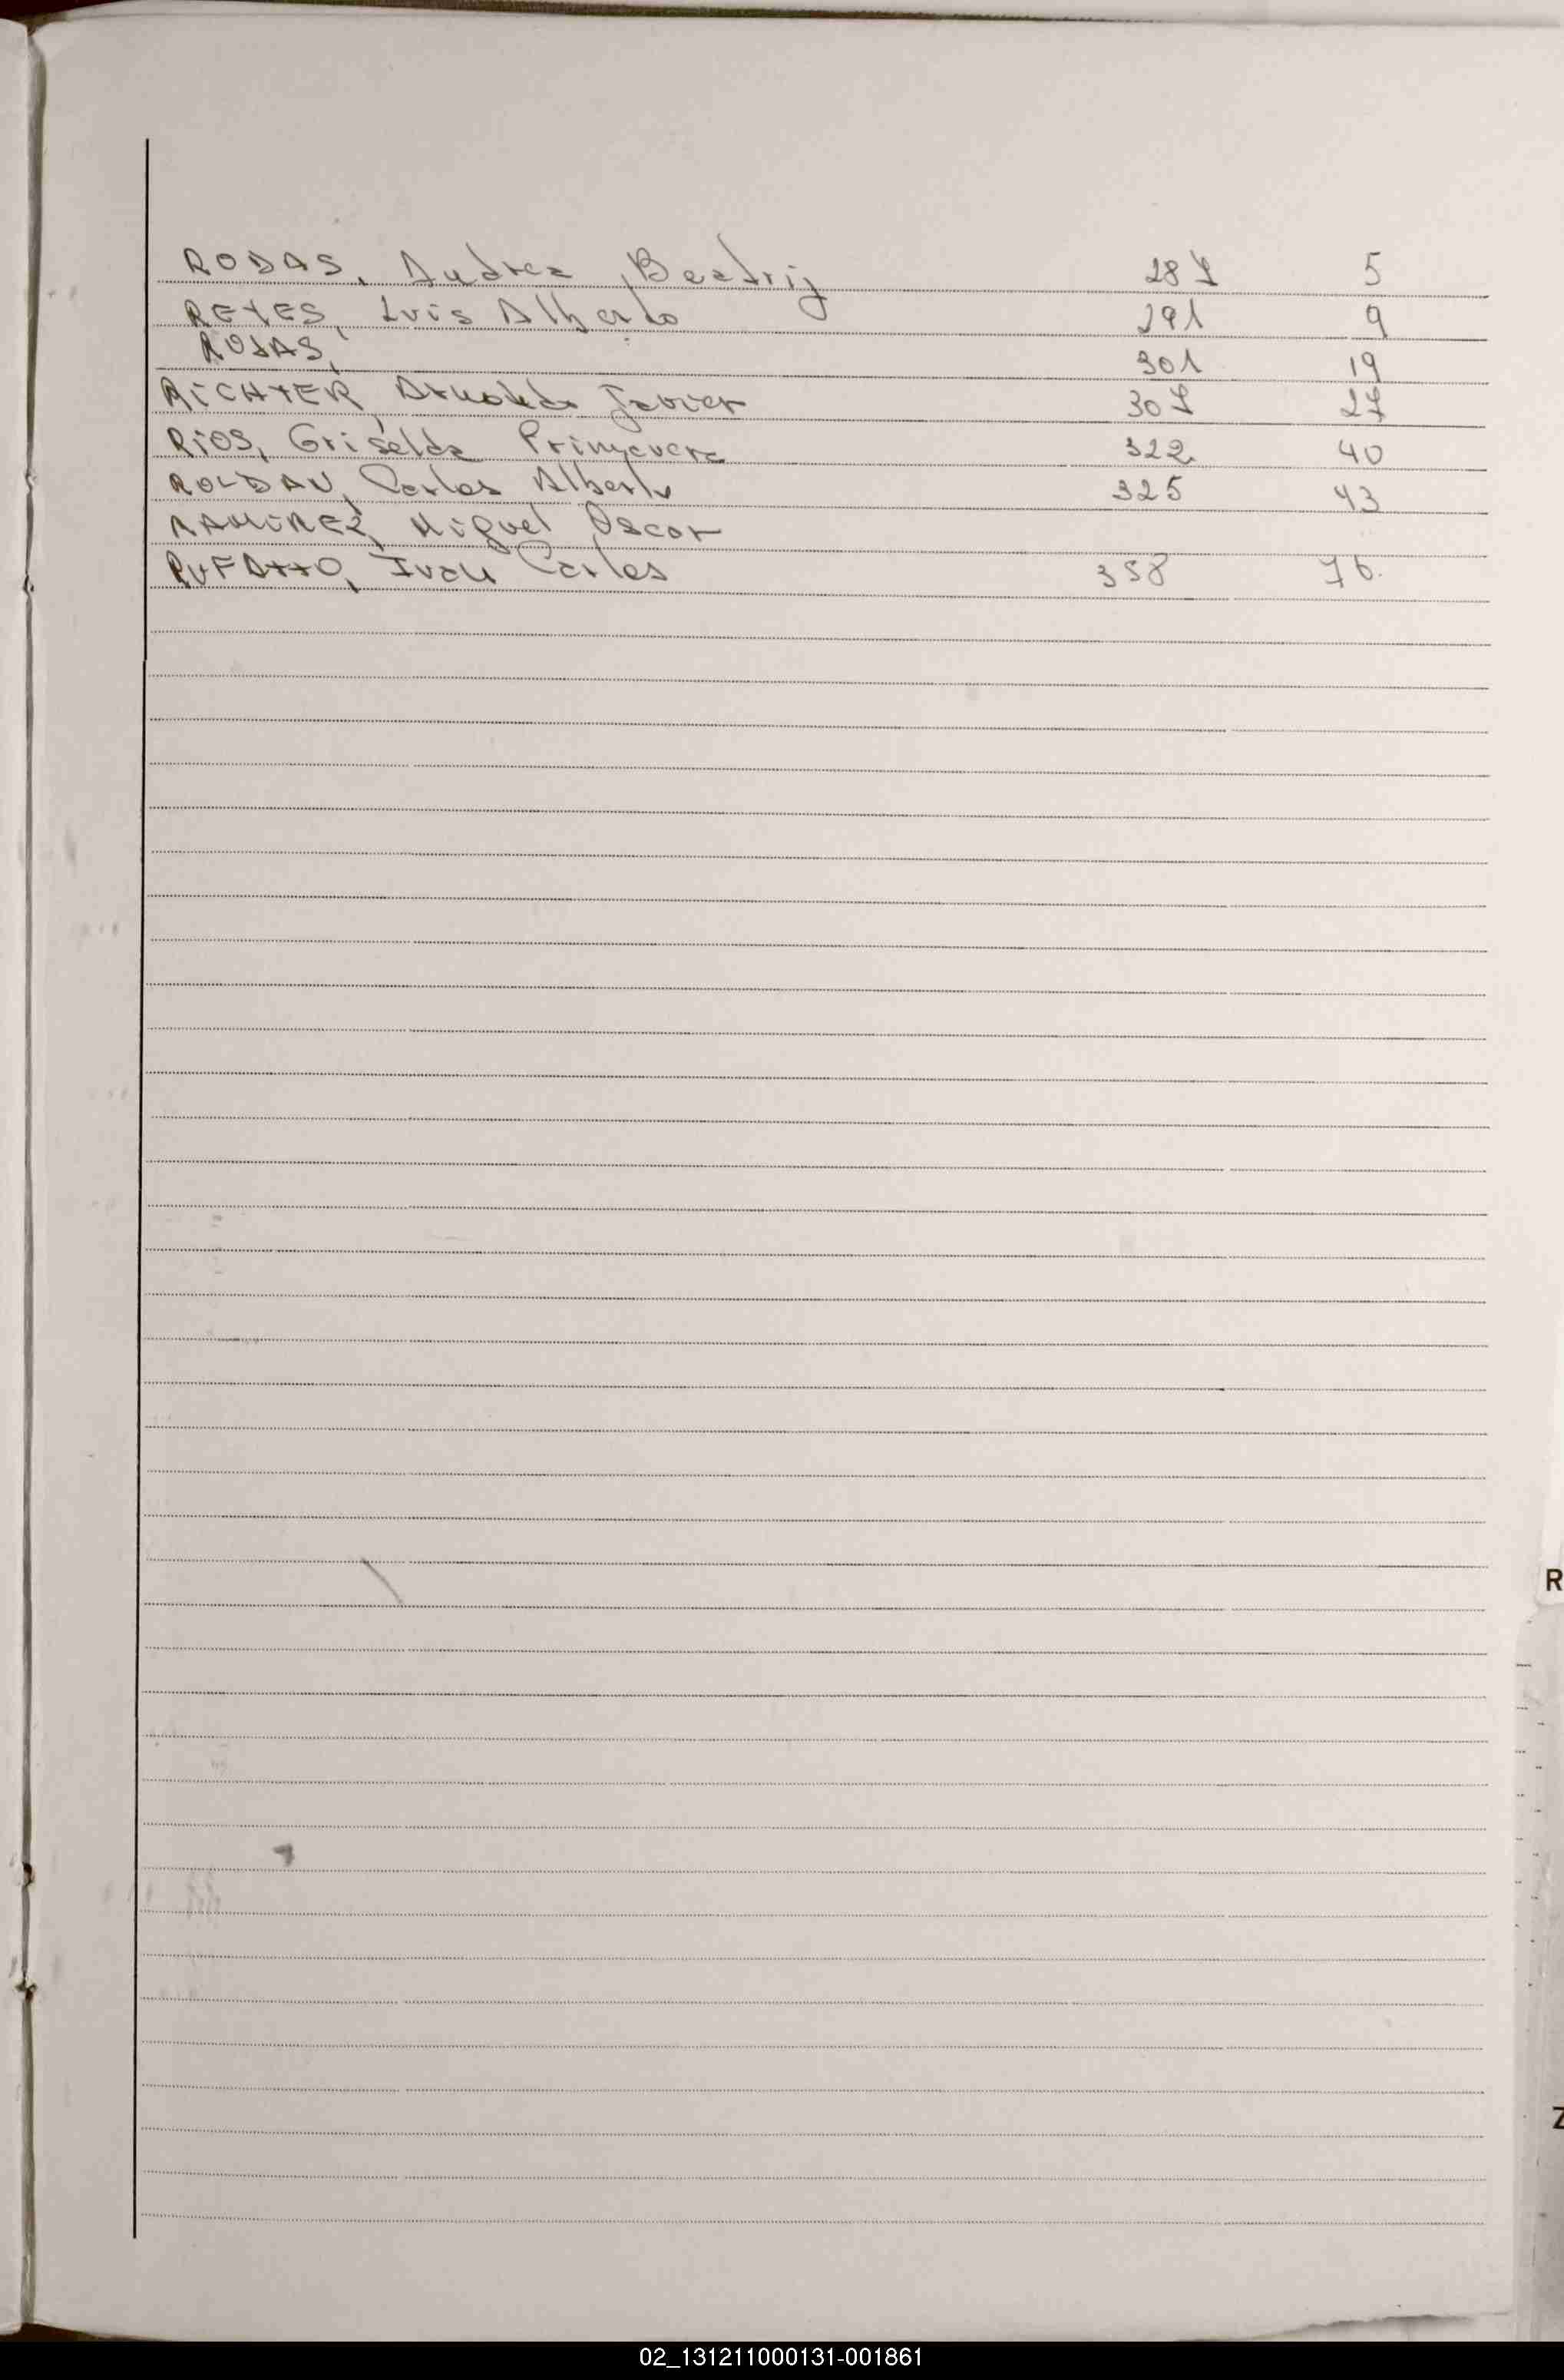 RODAS, Andrea Beatriz 287 5
REYES, Luis Alberto 291 9
RODAS, 301 19
RICHTER, Arnoldo Javier 307 27
RIOS, Griselda Primavera 322 40
ROLDAN, Carlos Alberto 325 43
RAMIREZ, Miguel Oscar
RUFATTO, Ivan Carlos 358 76.
R
Z
02_131211000131-001861